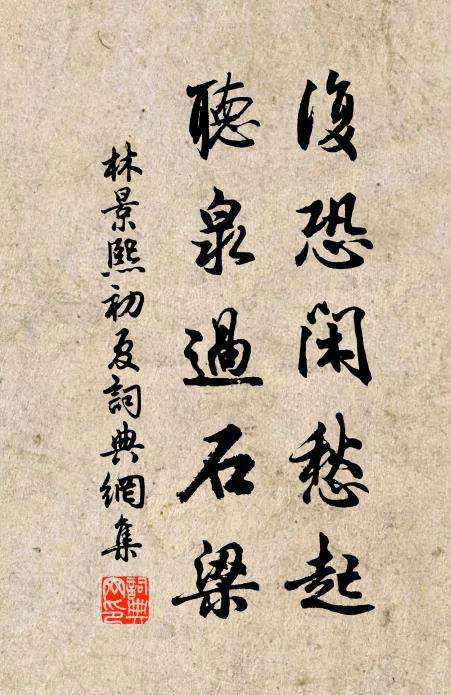 復恐閑愁起
聽泉過石梁
林景熙初夏詞典網集
詞典網印